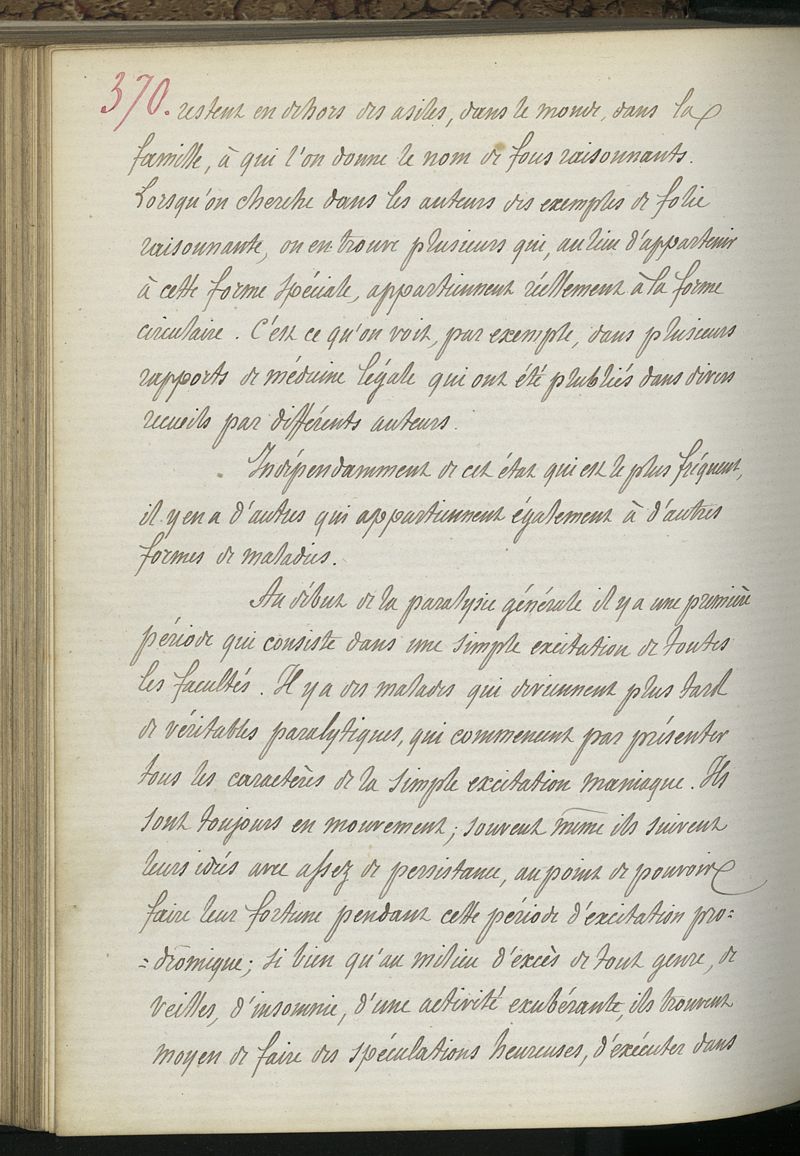 370. restent en dehors des asiles, dans le monde, dans la
famille, à qui l'on donne le nom de fous raisonnants.
Lorsqu'on cherche dans les auteurs des exemples de folie
raisonnante, on en trouve plusieurs qui, au lieu d'appartenir
à cette forme spéciale, appartiennent réellement à la forme
circulaire. C'est ce qu'on voit, par exemple, dans plusieurs
rapports de médecine légale qui ont été plubliés dans divers
recueils par différents auteurs.
Indépendamment de cet état qui est le plus fréquent,
il y en a d'autres qui appartiennent également à d'autres
formes de maladies.
Au début de la paralysie générale il y a une première
période qui consiste dans une simple excitation de toutes
les facultés. Il y a des malades qui deviennent plus tard
de véritables paralytiques, qui commencent par présenter
tous les caractères de la simple excitation maniaque. Ils
sont toujours en mouvement; souvent même ils suivent
leurs idées avec assez de persistance, au point de pouvoir
faire leur fortune pendant cette période d'excitation pro=
=dromique; si bien qu'au milieu d'excès de tout genre, de
veilles, d'insomnie, d'une activité exubérante, ils trouvent
moyen de faire des spéculations heureuses, d'exécuter dans